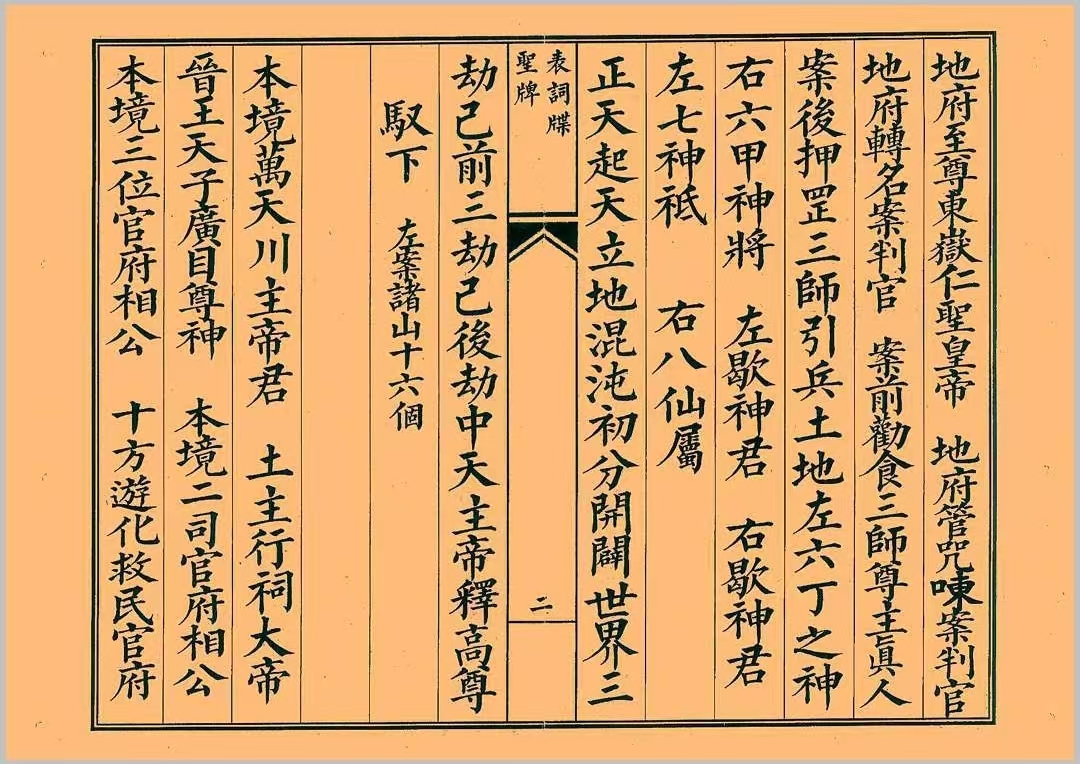 地府至尊東嶽仁聖皇帝　地府管咒㖦案判官
地府轉名案判官　案前勸食三師尊主眞人
案後押罡三師引兵土地左六丁之神
右六甲神將　左歇神君　右歇神君
左七神祇　右八仙屬
正天起天立地混沌初分開闢世界三
表詞牒
聖牌
二
劫已前三劫已後劫中天主帝釋高尊
馭下　左案諸山十六個
本境萬天川主帝君　土主行祠大帝
晉王天子廣目尊神　本境二司官府相公
本境三位官府相公　十方遊化救民官府